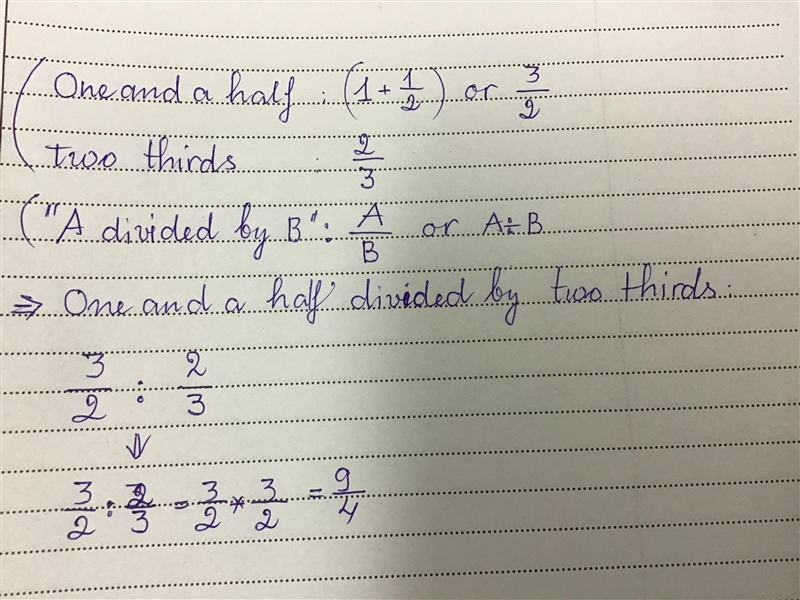 One and a half : (1 + 1/2) or 3/2
two thirds : 2/3
("A divided by B": A/B or A÷B
⇒ One and a half divided by two thirds:
3/2 : 2/3
⇓
3/2 : 2/3 = 3/2 * 3/2 = 9/4